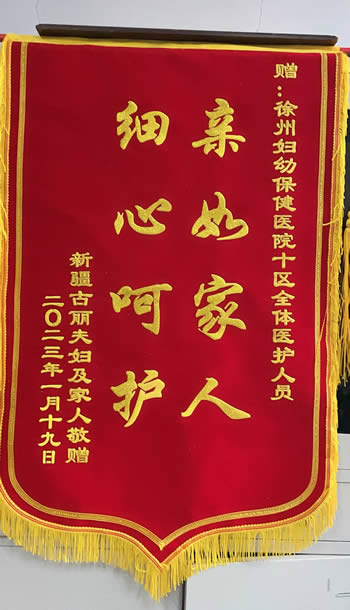 赠:徐州妇幼保健医院十区全体医护人员
亲如家人
细心呵护
新疆古丽夫妇及家人敬赠
二〇二三年一月十九日